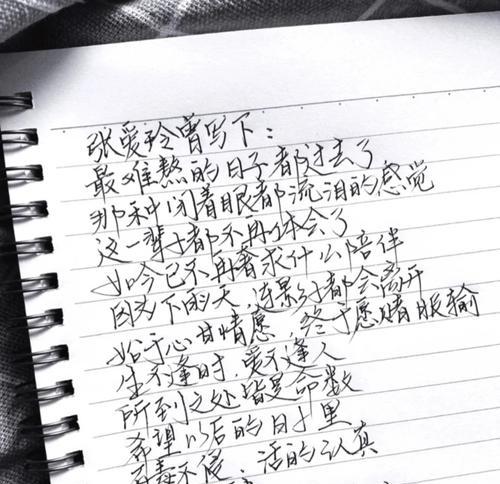 张爱玲曾写下：
最难熬的日子都过去了
那种闭着眼都流泪的感觉
这一辈子都不再体会了
如今已不再奢求什么陪伴
因为下雨天，连影子都会离开
始于心甘情愿，终于愿赌服输
生不逢时，爱不逢人
所到之处皆是命数
希望以后的日子里
百毒不侵，活的认真